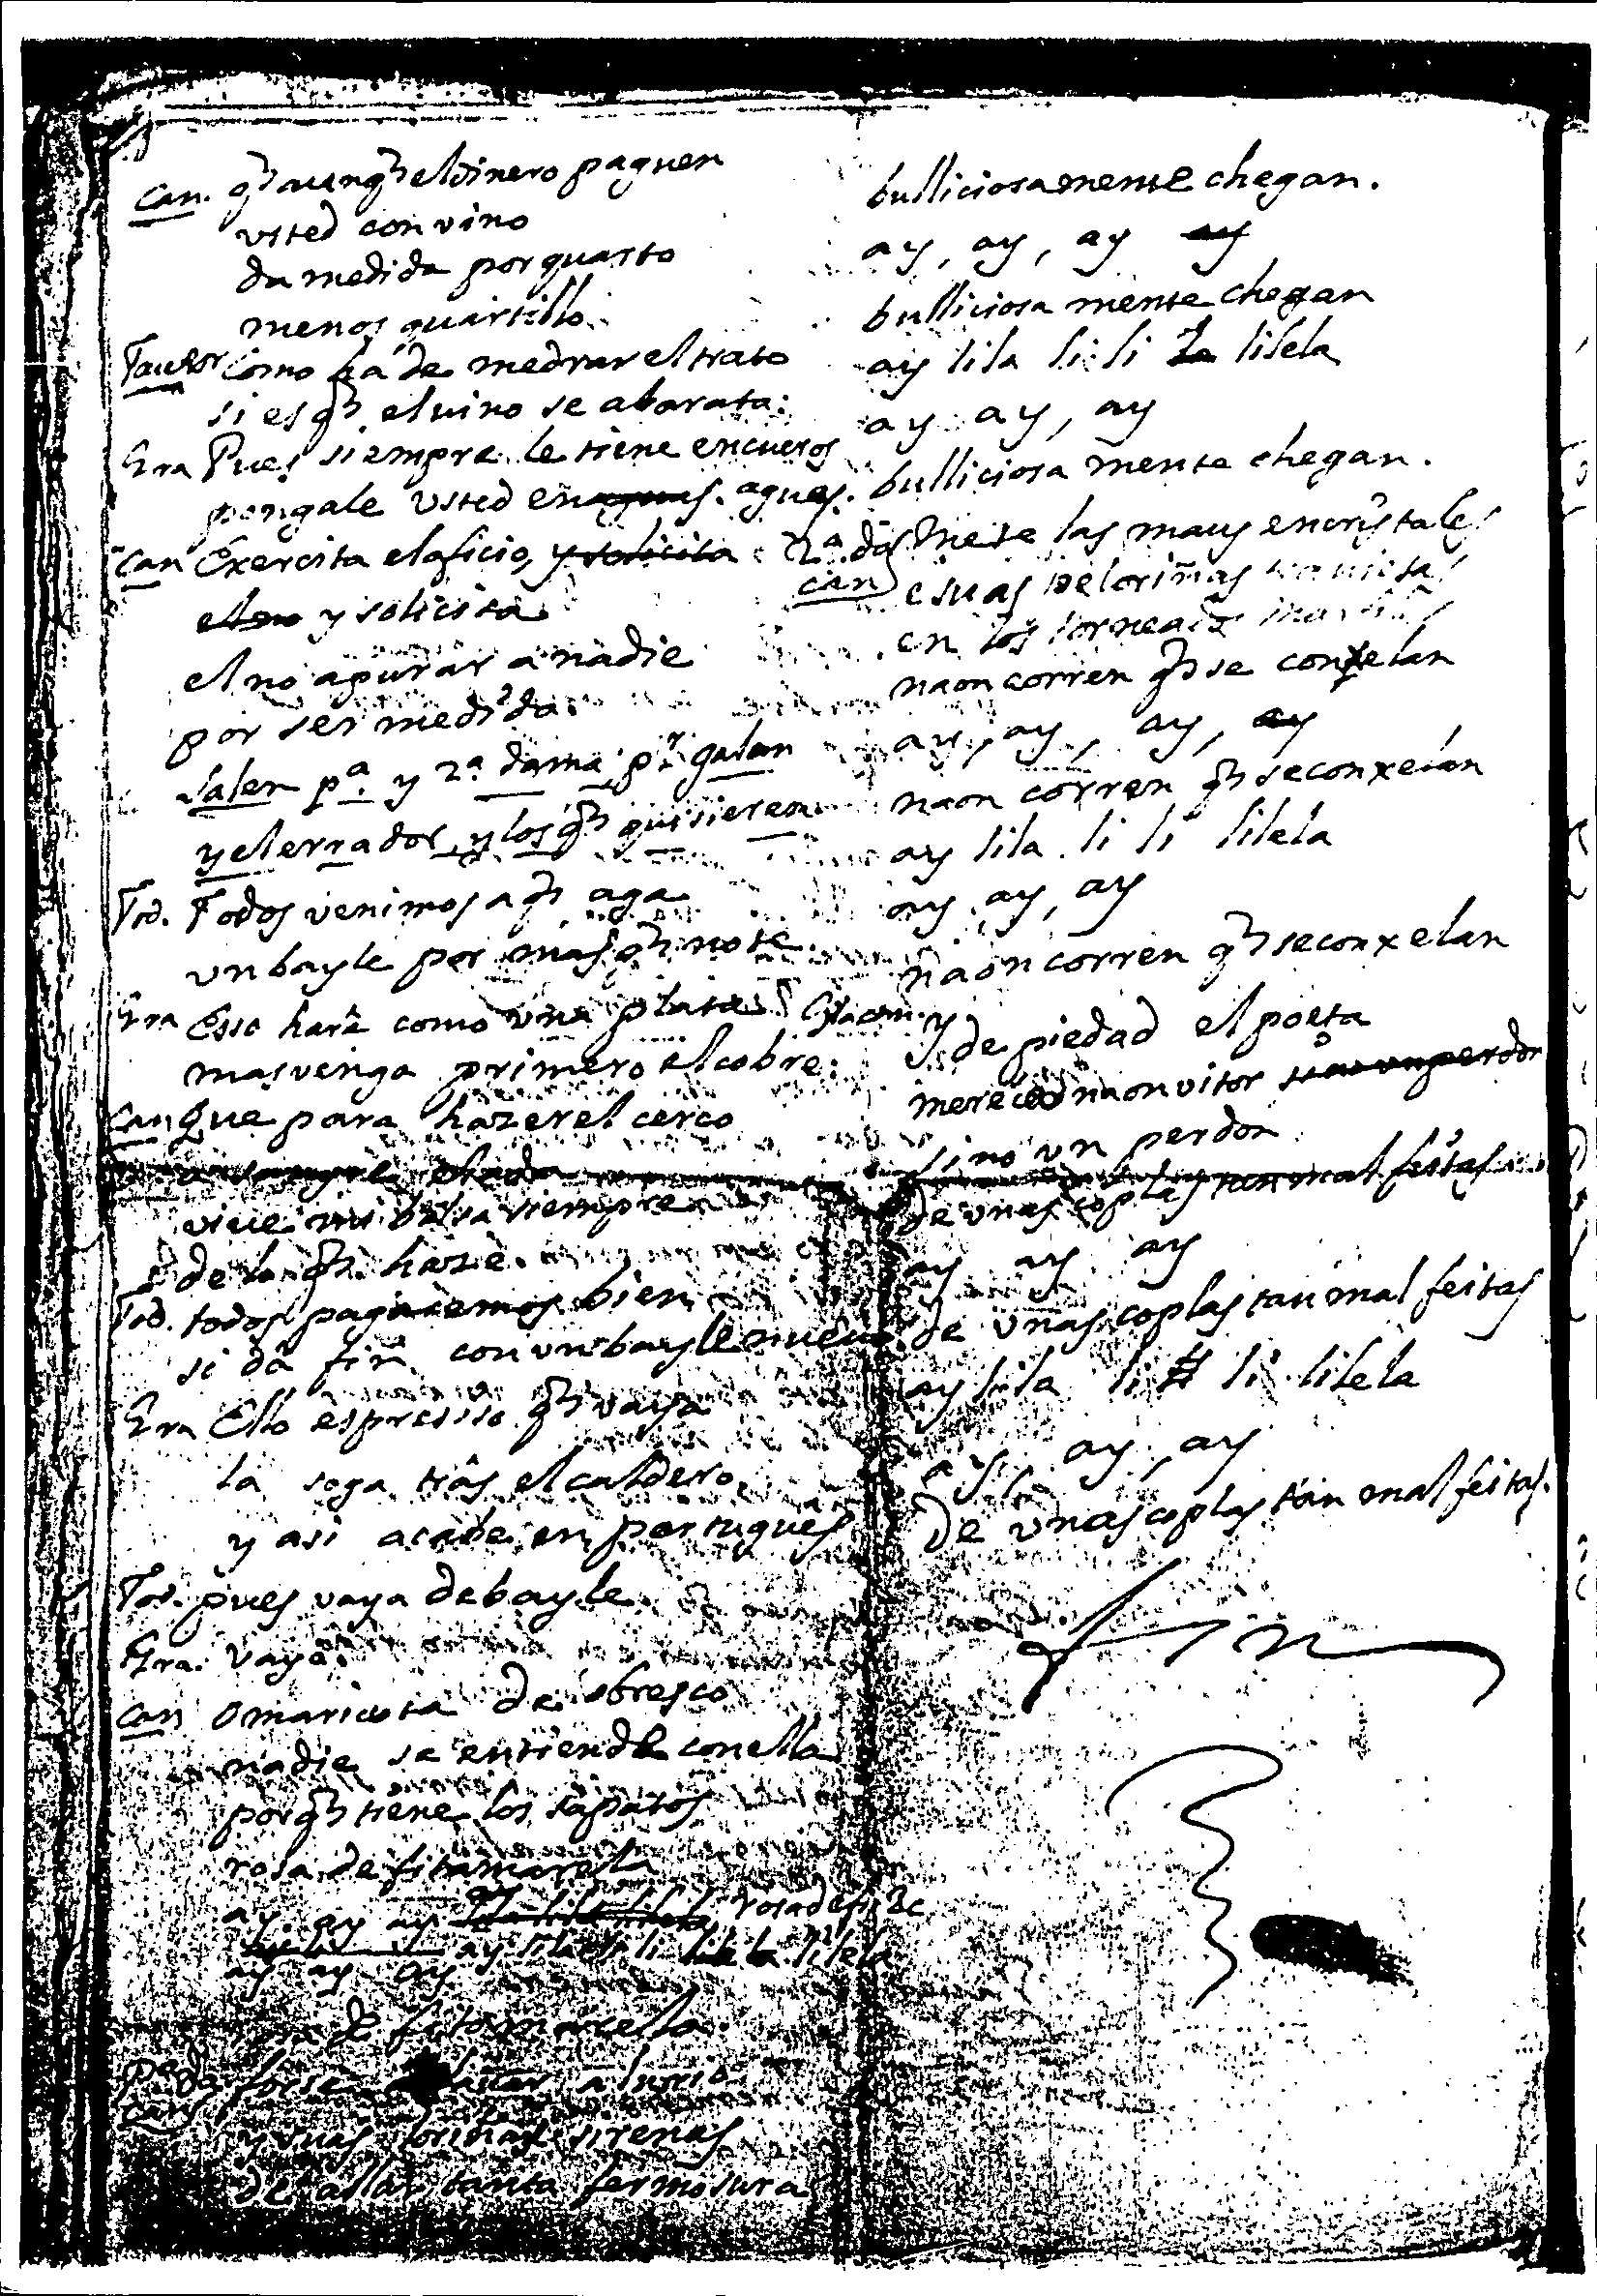 Can. q̃ aunq̃ el dinero paguen
usted con vino
da medida por quarto
menos quartillo.
como ha de medrar el trato
si es q̃ el uino se abarata:
Gra Pues siempre le tiene encueros
pongale usted enaguas. aguas.
Can Exercita el oficio, y solicita
y solicita
el no apurar a nadie
por ser medida.
Salen pª. y 2ª dama pr. galan
y el errador y los q̃ quisieren
Tod. Todos venimos a q̃ aga
un bayle por mas q̃ note.
Gra Esso hará como una plata
mas venga primero el cobre:
Can Que para hazer el cerco
viue mi bolsa siempre
de la q̃ haze.
Tod. todos pagaremos bien
si dà fin con un bayle nueuo.
Gra Ello es presiso q̃ vaya
la soga tràs el caldero,
y asi acabe en portuguès
Tod. pues vaya de bayle.
Gra. vaya.
Can o maricota de obresco
nadie se entiende con ella
porq̃ tiene los sapatos
rosa de fitamarela
ay ay ay rosa de fi &c
ay lila li li lilela
ay ay ay
de fitamarella.
pª dª
can
y suas sirenas
de allar tanta fermosura
bulliciosamente chegan.
ay, ay, ay ay
bulliciosa mente chegan
ay lila li li la lilela
ay ay, ay
bulliciosa mente chegan.
2ª dª can Mete las maus en cristales
e suas peloriñas
en los torneados
naon corren q̃ se conxelan
ay, ay, ay, ay
naon corren q̃ se conxelan
ay lila li li lilela
ay, ay, ay
naon corren q̃ se conxelan
Gracan. y de piedad el poeta
mereceo naon vitor sino un perdon
sino un perdon
de unas coplas tan mal feitas
ay ay ay
de unas coplas tan mal feitas
ay lila li li lilela
ay, ay, ay
de unas coplas tan mal feitas.
Fin